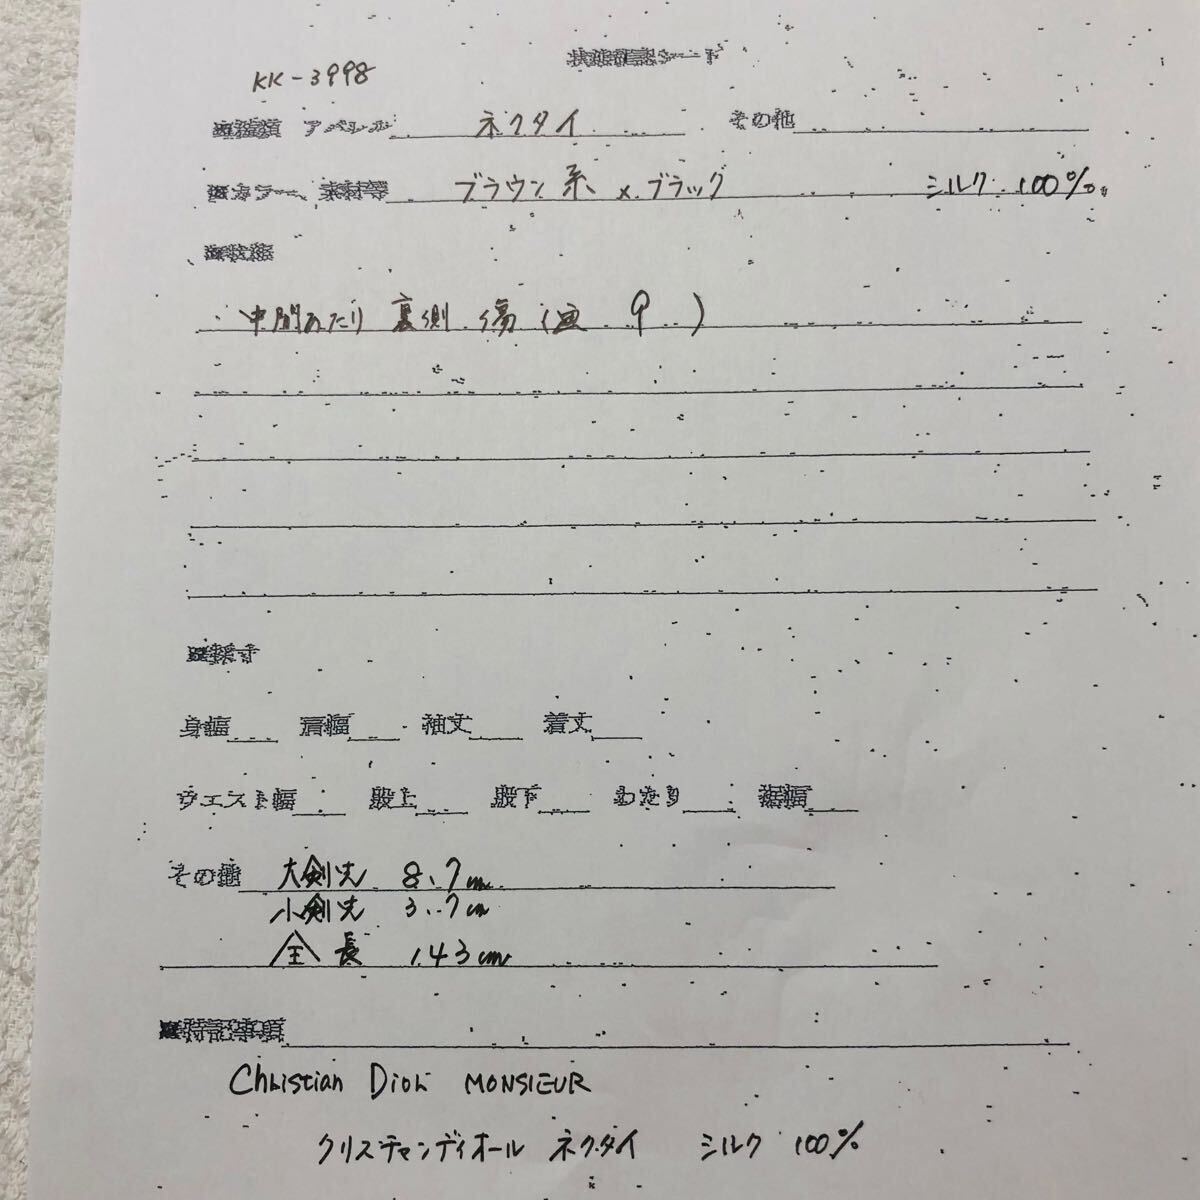 状態確認シート
KK-3998
■種類 アパレル ネクタイ その他
■カラー、素材等 ブラウン系 × ブラック シルク 100%
■状態
・中間あたり 裏側 傷(画 9 )
■採寸
身幅 肩幅 袖丈 着丈
ウエスト幅 股上 股下 わたり 裾幅
その他 大剣先 8.7cm
小剣先 3.7cm
全長 143cm
■特記事項
Christian Dior MONSIEUR
クリスチャンディオール ネクタイ シルク 100%